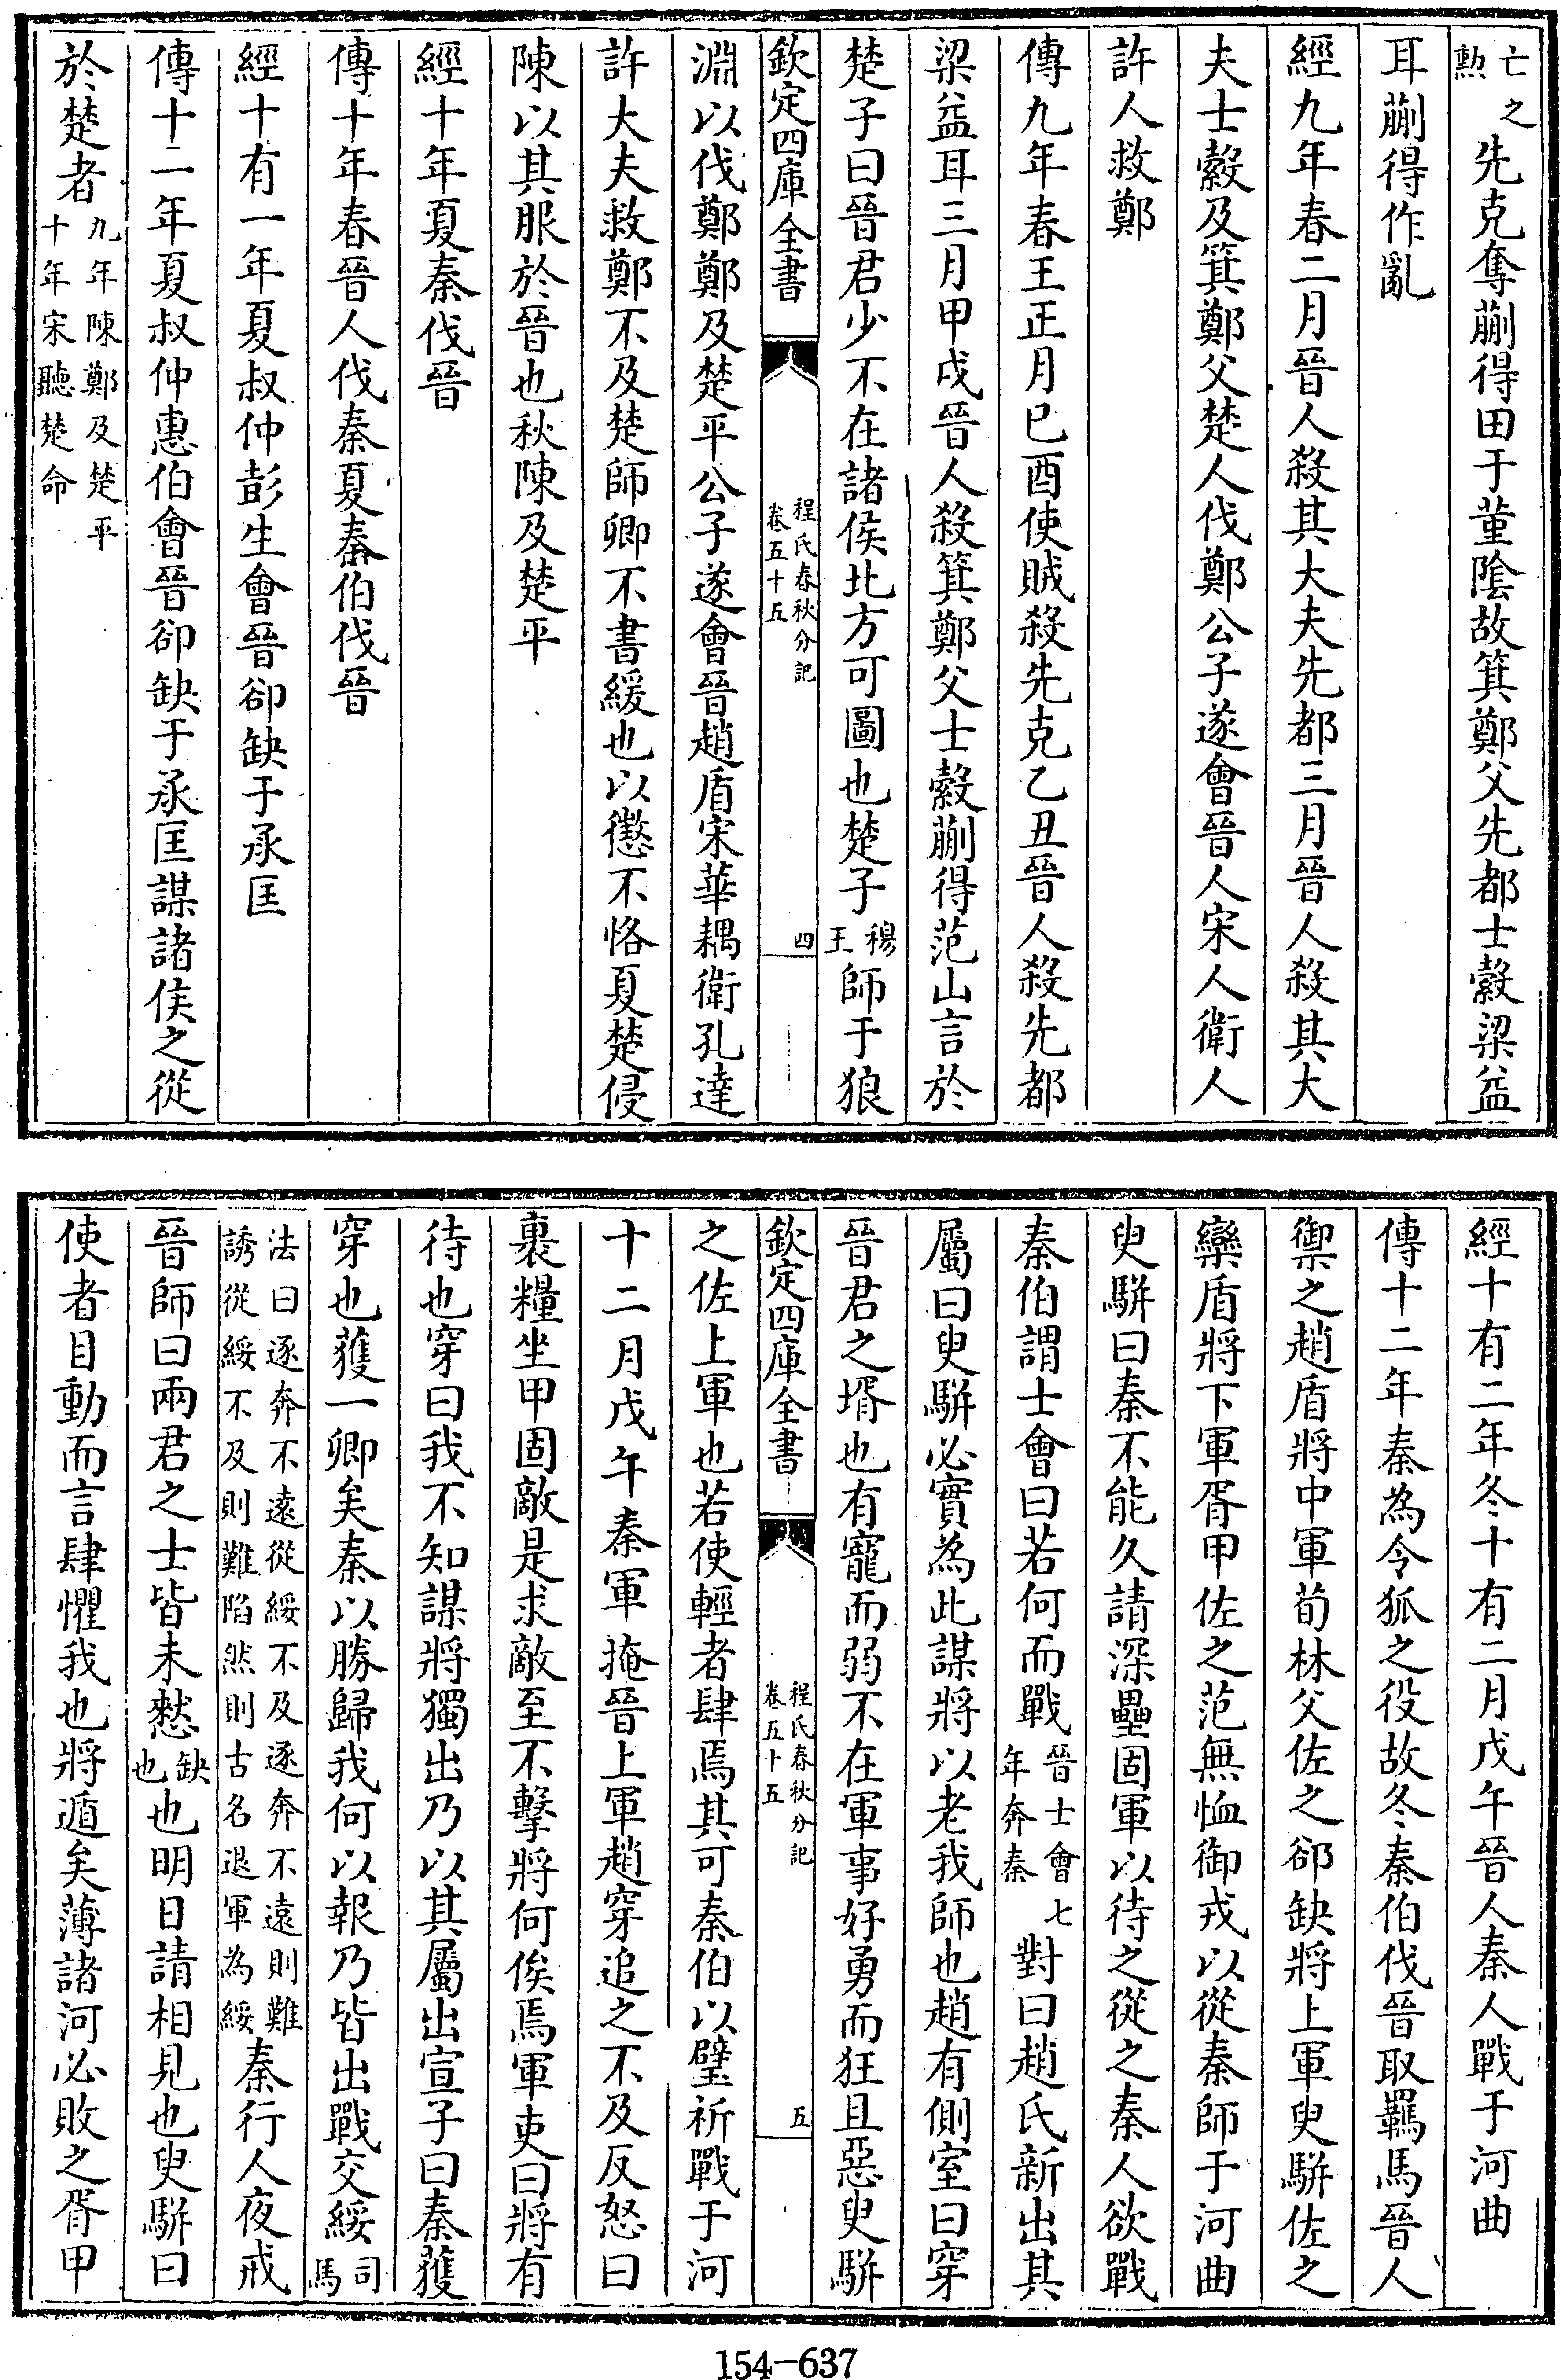 亡之勲先克奪蒯得田于菫陰故箕鄭父先都士縠梁益
耳蒯得作亂
經九年春二月晉人殺其大夫先都三月晉人殺其大
夫士縠及箕鄭父楚人伐鄭公子遂會晉人宋人衛人
許人救鄭
傳九年春王正月己酉使賊殺先克乙丑晉人殺先都
梁益耳三月甲戌晉人殺箕鄭父士縠蒯得范山言於
楚子曰晉君少不在諸侯北方可圖也楚子穆王師于狼
欽定四庫全書
程氏春秋分記
卷五十五
四
淵以伐鄭鄭及楚平公子遂會晉趙盾宋華耦衛孔達
許大夫救鄭不及楚師卿不書緩也以懲不恪夏楚侵
陳以其服於晉也秋陳及楚平
經十年夏秦伐晉
傳十年春晉人伐秦夏秦伯伐晉
經十有一年夏叔仲彭生會晉郤缺于承匡
傳十一年夏叔仲惠伯會晉郤缺于承匡謀諸侯之從
於楚者九年陳鄭及楚平
十年宋聽楚命
經十有二年冬十有二月戊午晉人秦人戰于河曲
傳十二年秦為令狐之役故冬秦伯伐晉取羈馬晉人
禦之趙盾將中軍荀林父佐之郤缺將上軍臾駢佐之
欒盾將下軍胥甲佐之范無恤御戎以從秦師于河曲
臾駢曰秦不能久請深壘固軍以待之從之秦人欲戰
秦伯謂士會曰若何而戰晉士會七年奔秦對曰趙氏新出其
屬曰臾駢必實為此謀將以老我師也趙有側室曰穿
晉君之壻也有寵而弱不在軍事好勇而狂且惡臾駢
欽定四庫全書
程氏春秋分記
卷五十五
五
之佐上軍也若使輕者肆焉其可秦伯以璧祈戰于河
十二月戊午秦軍掩晉上軍趙穿追之不及反怒曰
裹糧坐甲固敵是求敵至不擊將何俟焉軍吏曰將有
待也穿曰我不知謀將獨出乃以其屬出宣子曰秦獲
穿也獲一卿矣秦以勝歸我何以報乃皆出戰交綏司馬
法曰逐奔不遠從綏不及逐奔不遠則難
誘從綏不及則難陷然則古名退軍為綏秦行人夜戒
晉師曰兩君之士皆未憖缺也也明日請相見也臾駢曰
使者目動而言肆懼我也將遁矣薄諸河必敗之胥甲
154-637